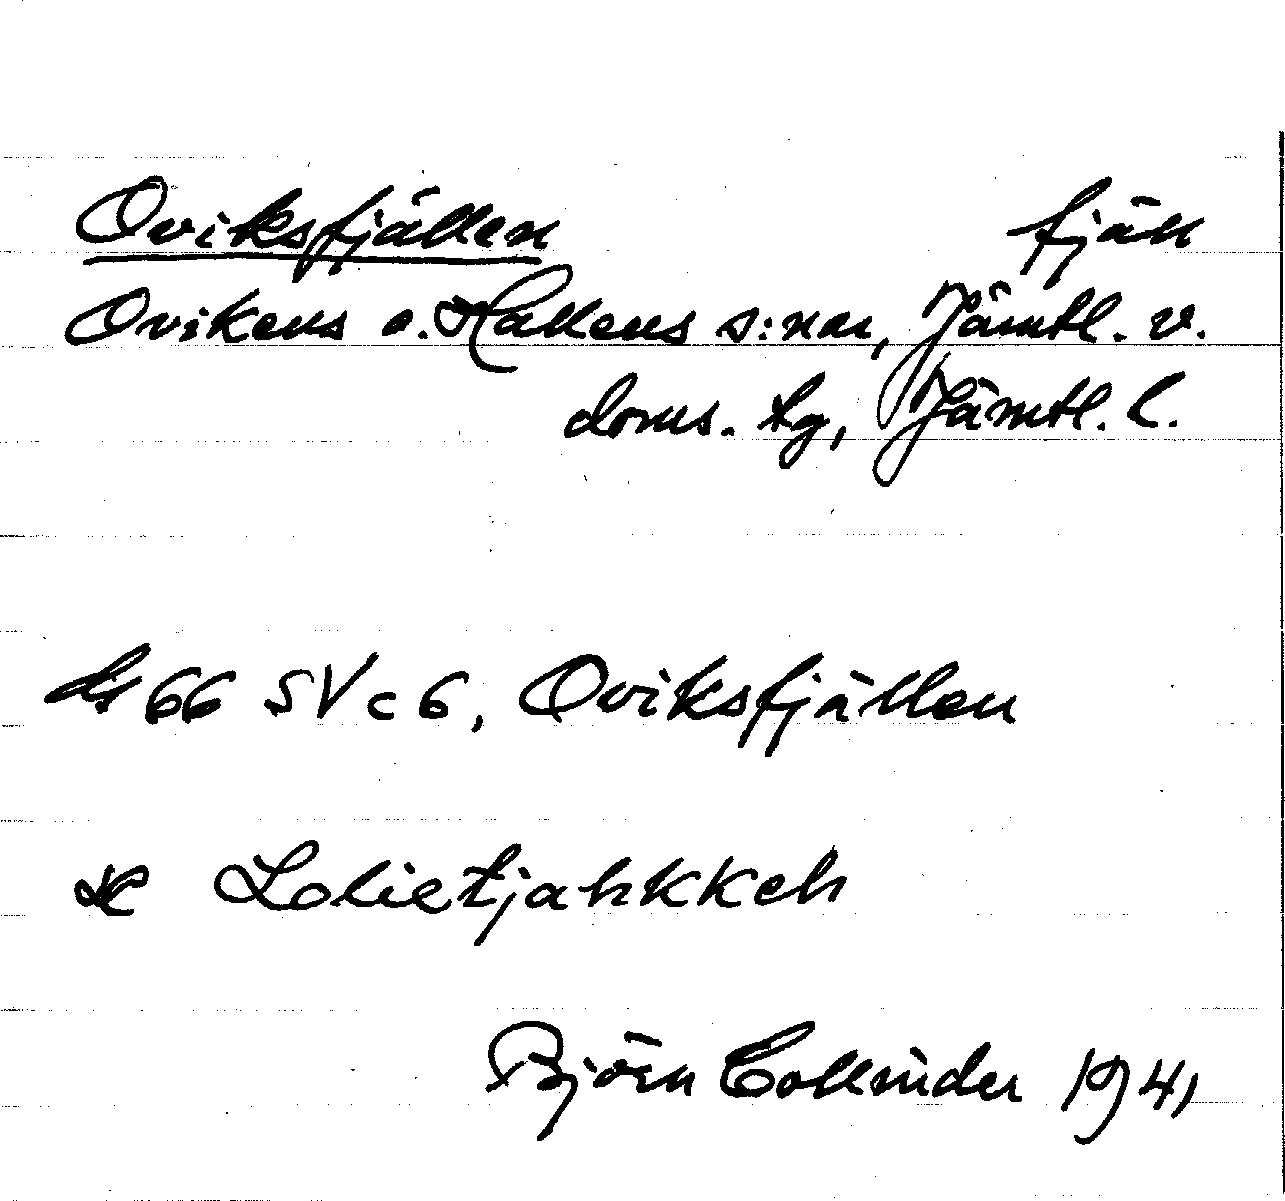 Oviksfjällen fjäll
Ovikens o. Hallens s:nar, Jämtl. v.
doms. tg, Jämtl. l.
bl 66 SV c 6, Oviksfjällen
Lolietjahkkeh
Björn Collinder 1941